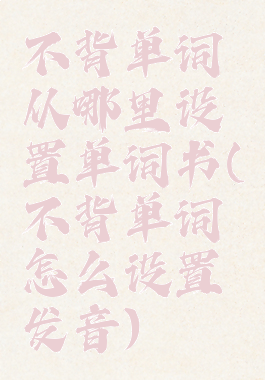 不背单词
从哪里设
置单词书(
不背单词
怎么设置
发音)